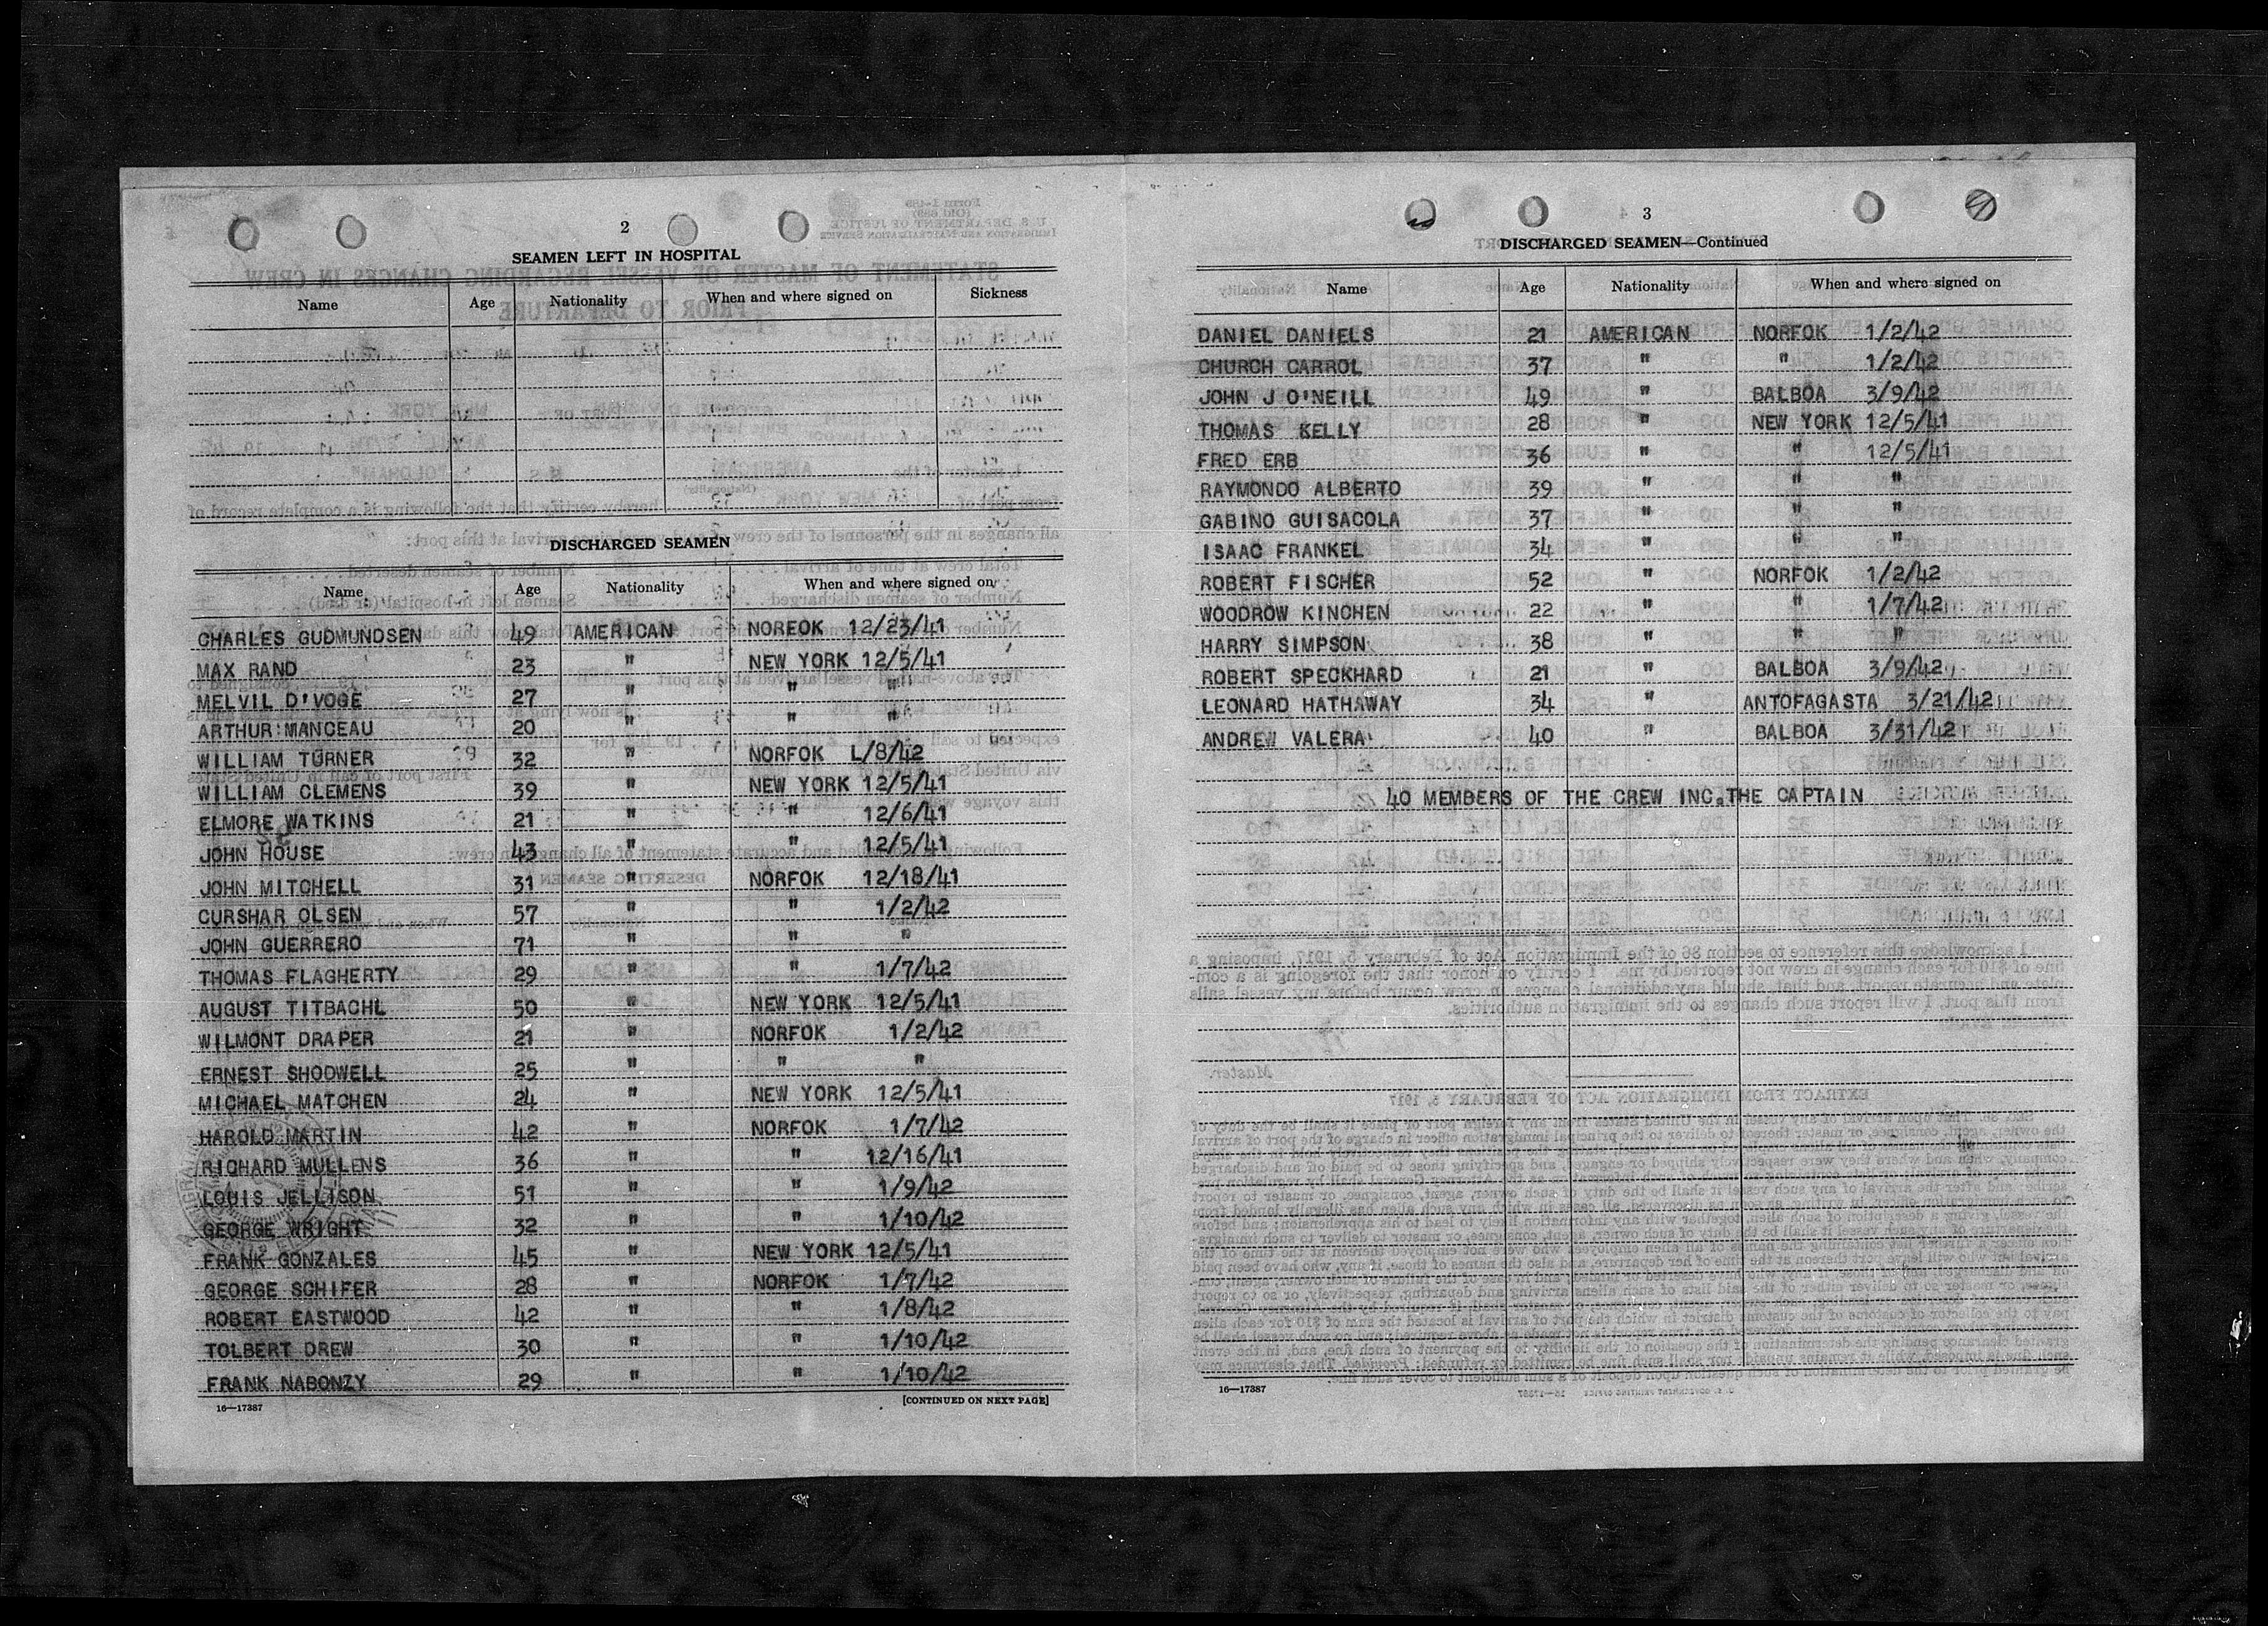 2
SEAMEN LEFT IN HOSPITAL
Name Age Nationality When and where signed on Sickness
DISCHARGED SEAMEN
Name Age Nationality When and where signed on
CHARLES GUDMUNDSEN 49 AMERICAN NORFOK 12/23/41
MAX RAND 23 " NEW YORK 12/5/41
MELVIL D'VOGE 27 " " "
ARTHUR MANCEAU 20 " " "
WILLIAM TURNER 32 " NORFOK L/8/42
WILLIAM CLEMENS 39 " NEW YORK 12/5/41
ELMORE WATKINS 21 " " 12/6/41
JOHN HOUSE 43 " " 12/5/41
JOHN MITCHELL 31 " NORFOK 12/18/41
CURSHAR OLSEN 57 " " 1/2/42
JOHN GUERRERO 71 " " "
THOMAS FLAGHERTY 29 " " 1/7/42
AUGUST TITBACHL 50 " NEW YORK 12/5/41
WILMONT DRAPER 21 " NORFOK 1/2/42
ERNEST SHODWELL 25 " " "
MICHAEL MATCHEN 24 " NEW YORK 12/5/41
HAROLD MARTIN 42 " NORFOK 1/7/42
RICHARD MULLENS 36 " " 12/16/41
LOUIS JELLISON 51 " " 1/9/42
GEORGE WRIGHT 32 " " 1/10/42
FRANK GONZALES 45 " NEW YORK 12/5/41
GEORGE SCHIFER 28 " NORFOK 1/7/42
ROBERT EASTWOOD 42 " " 1/8/42
TOLBERT DREW 30 " " 1/10/42
FRANK NABONZY 29 " " 1/10/42
16—17387 [CONTINUED ON NEXT PAGE]
3
DISCHARGED SEAMEN—Continued
Name Age Nationality When and where signed on
DANIEL DANIELS 21 AMERICAN NORFOK 1/2/42
CHURCH CARROL 37 " " 1/2/42
JOHN J O'NEILL 49 " BALBOA 3/9/42
THOMAS KELLY 28 " NEW YORK 12/5/41
FRED ERB 36 " " 12/5/41
RAYMONDO ALBERTO 39 " " "
GABINO GUISACOLA 37 " " "
ISAAC FRANKEL 34 " " "
ROBERT FISCHER 52 " NORFOK 1/2/42
WOODROW KINCHEN 22 " " 1/7/42
HARRY SIMPSON 38 " " "
ROBERT SPECKHARD 21 " BALBOA 3/9/42
LEONARD HATHAWAY 34 " ANTOFAGASTA 3/21/42
ANDREW VALERA 40 " BALBOA 3/31/42
40 MEMBERS OF THE CREW INC.THE CAPTAIN
16—17387